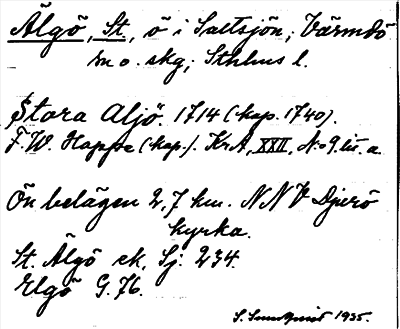 Älgö, St., ö i Saltsjön, Värmdö
m o. skg, Sthlms l.
Stora Aljö. 1714 (kop. 1740).
F. W. Hoppe (kop.). KrA, XXII, No 9. lit. a.
Ön belägen 2,7 km. NNV Djurö
kyrka.
St. Älgö ek. Sj. 234.
Elgö G. 76.
S. Sundquist 1935.